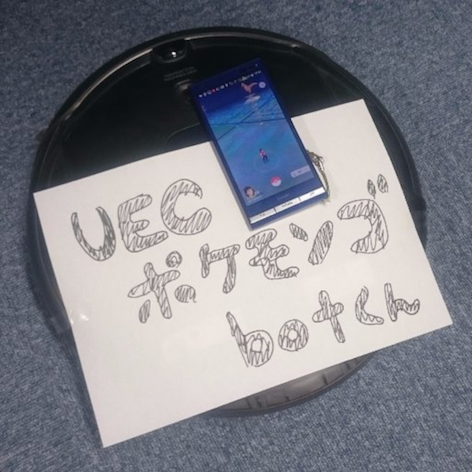 UEC
ポケモンゴ
botくん